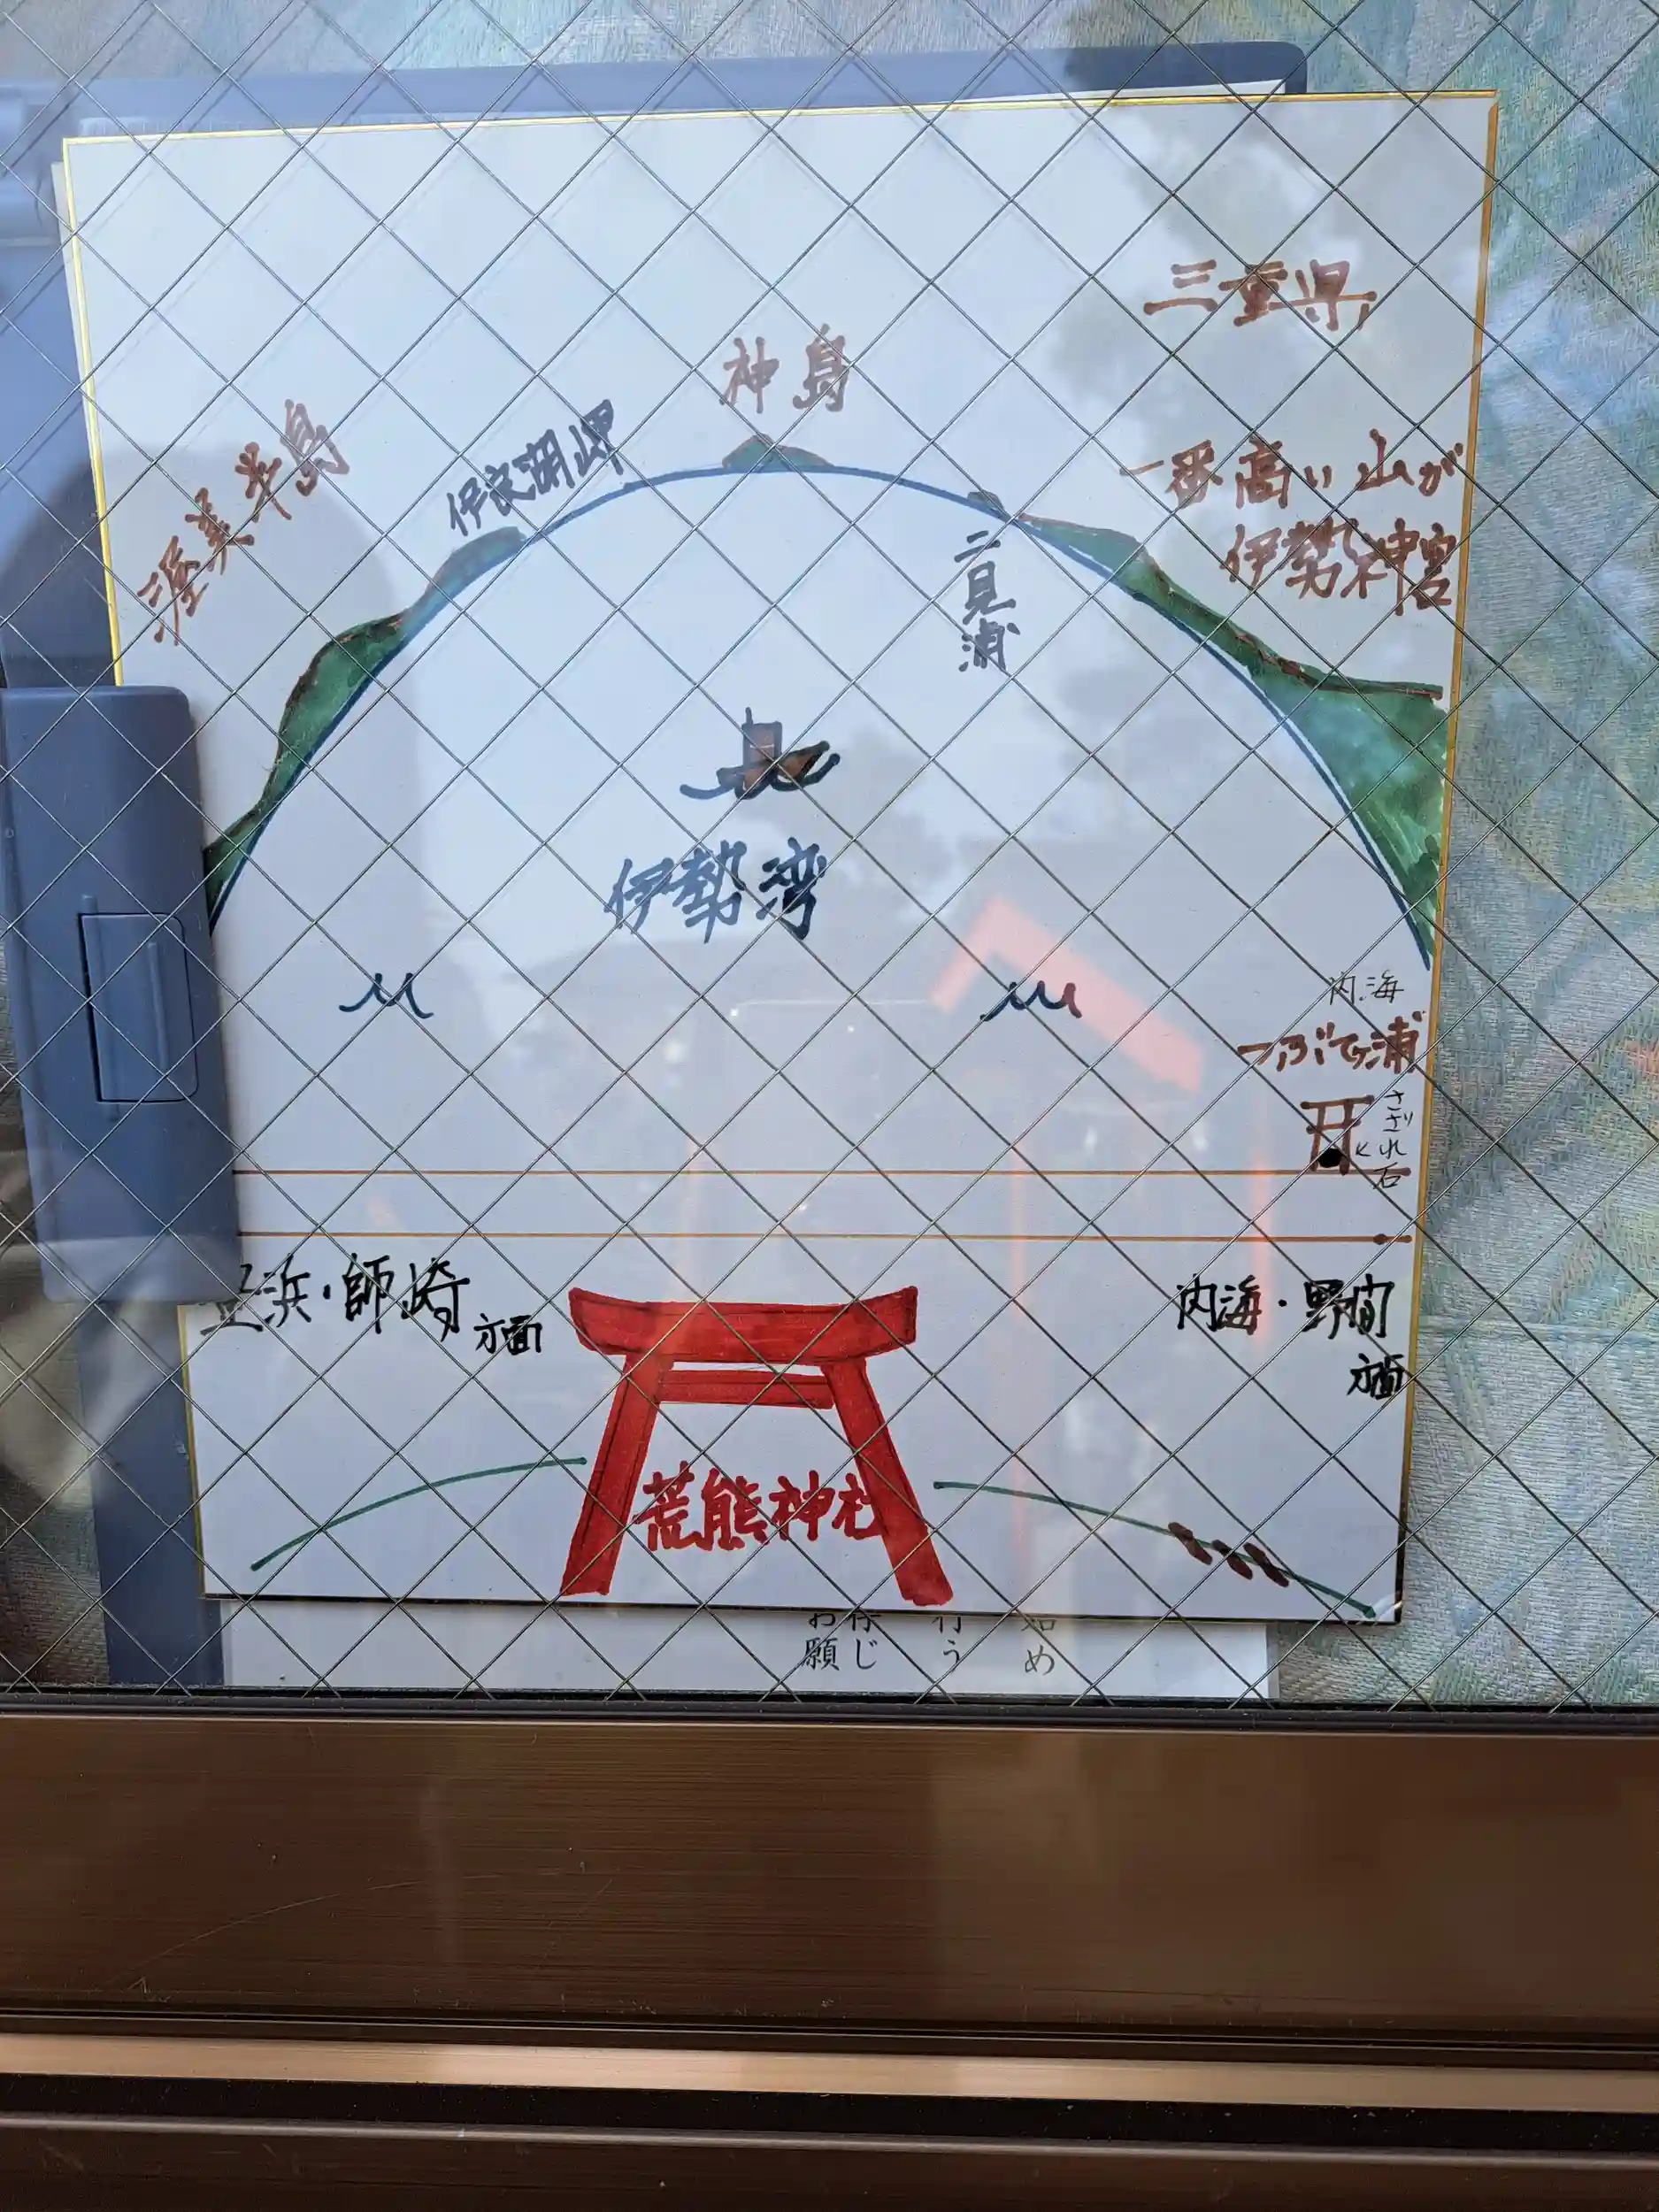 三重県
神島
渥美半島
伊良湖岬
一番高い山が
伊勢神宮
二見浦
伊勢湾
内海
つぶてヶ浦
さざれ石
豊浜・師崎
方面
内海・野間
方面
荒熊神社
お願
じ
行う
始め